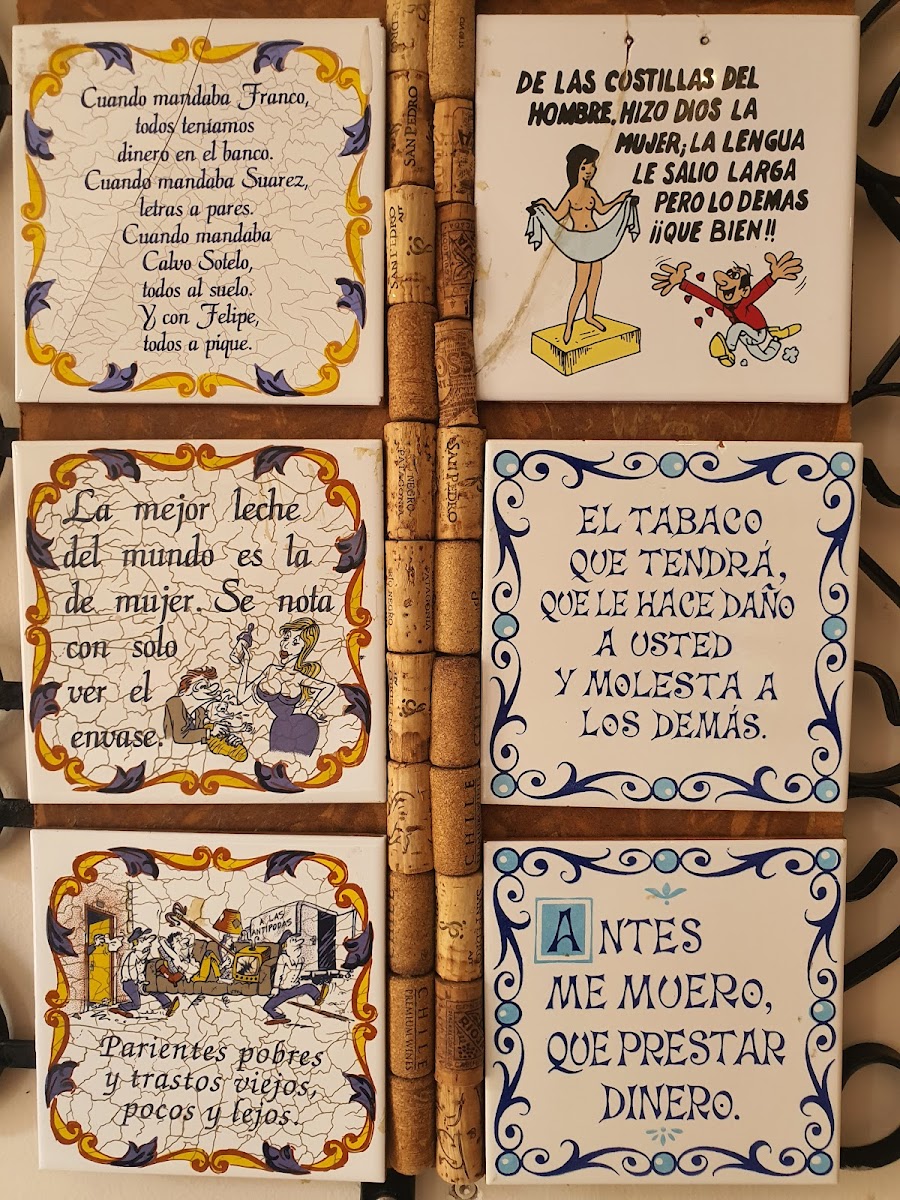 Cuando mandaba Franco,
todos teníamos
dinero en el banco.
Cuando mandaba Suarez,
letras a pares.
Cuando mandaba
Calvo Sotelo,
todos al suelo.
Y con Felipe,
todos a pique.
DE LAS COSTILLAS DEL
HOMBRE, HIZO DIOS LA
MUJER; LA LENGUA
LE SALIO LARGA
PERO LO DEMAS
¡¡QUE BIEN!!
La mejor leche
del mundo es la
de mujer. Se nota
con solo
ver el
envase.
EL TABACO
QUE TENDRÁ,
QUE LE HACE DAÑO
A USTED
Y MOLESTA A
LOS DEMÁS.
A LAS
ANTIPODAS
Parientes pobres
y trastos viejos,
pocos y lejos.
ANTES
ME MUERO,
QUE PRESTAR
DINERO.
SAN PEDRO
SAN PEDRO
SAN PEDRO
NEGRO
PATAGONIA
CHILE
CHILE
PREMIUM WINES